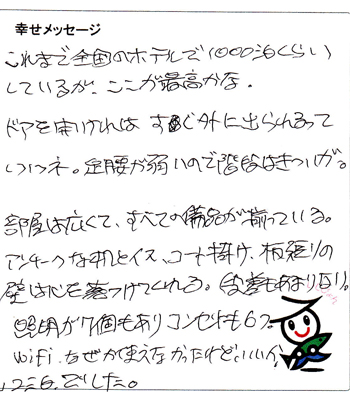 幸せメッセージ
これまで全国のホテルで1000泊くらい
しているが、ここが最高かな。
ドアを開ければ すぐ外に出られるって
いいネ。足腰が弱いので階段はきついが。
部屋は広くて、すべての備品が揃っている。
アンチークな机とイス、コート掛け、板張りの
壁は心を落つけてくれる。段差もあまりない。
照明が7個もありコンセントも6つ
wifi、なぜか使えなかったけど、いいん
でした。